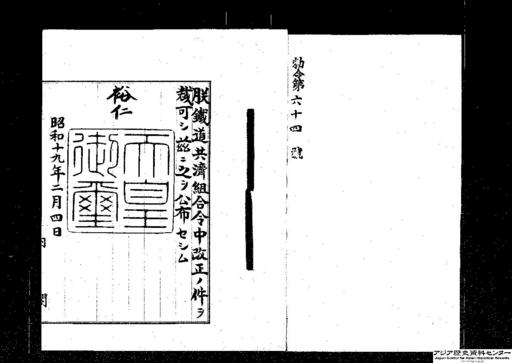 勅令第六十四號
朕鐵道共濟組合令中改正ノ件ヲ
裁可シ茲ニ之ヲ公布セシム
裕仁
天皇
御璽
昭和十九年二月四日
内閣
アジア歴史資料センター
Japan Center for Asian Historical Records